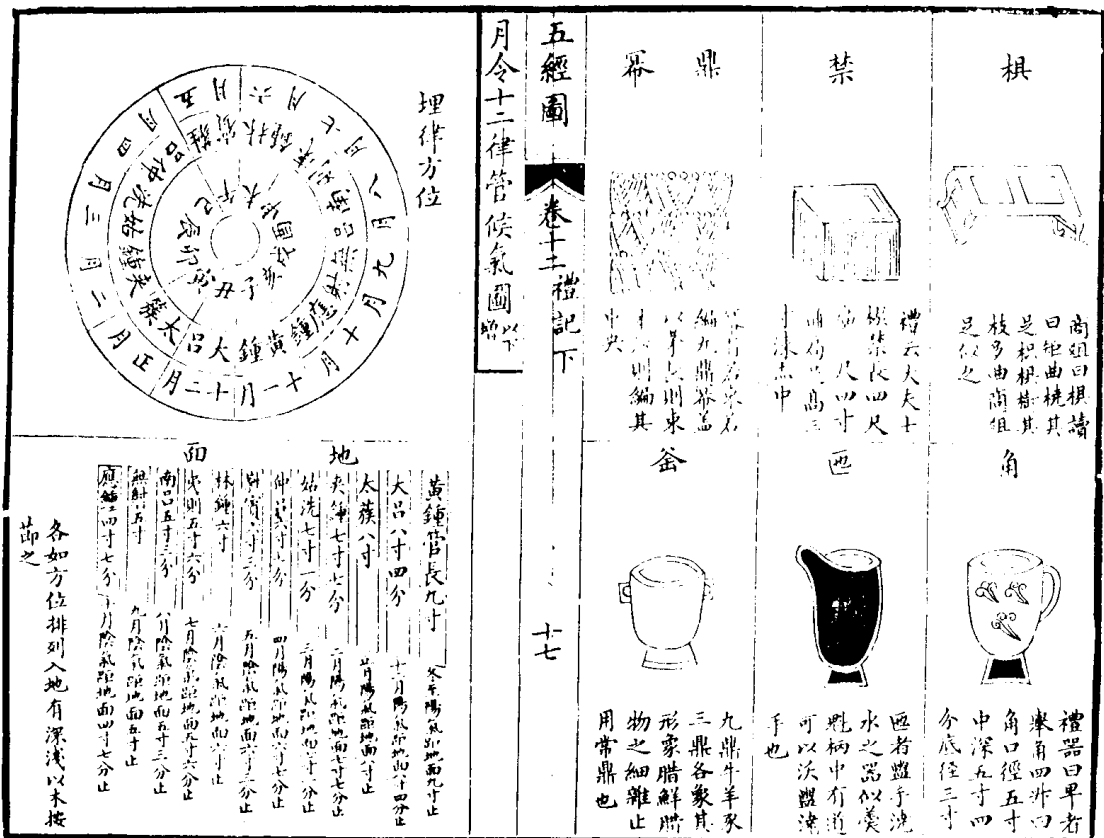 棋
商俎曰棋讀
曰矩曲橈其
足枳棋樹其
枝多曲商俎
足似之
禁
禮云大夫士
棜禁長四尺
尺四寸
高三
寸漆赤中
鼎冪
編
鼎冪蓋
以茅長則束
則編其
中央
角
禮器曰卑者
舉角四升曰
角口徑五寸
中深五寸四
分底徑三寸
匜
匜者盥手澆
水之器似羹
魁柄中有道
可以沃盥澆
手也
釜
九鼎牛羊豕
三鼎各象其
形象腊鮮腊
物之細雜止
用常鼎也
五經圖
卷十二 禮記下
十七
月令十二律管候氣圖 以下
埋律方位
正月
二月
三月
四月
五月
六月
七月
八月
九月
十月
十一月
十二月
太簇
夾鍾
姑洗
仲呂
蕤賓
林鍾
夷則
南呂
無射
應鍾
黃鍾
大呂
子
丑
寅
卯
辰
巳
午
未
申
酉
戌
亥
地面
黃鍾管長九寸 冬至陽氣距地面九寸止
大呂八寸四分 十二月陽氣距地面八寸四分止
太蔟八寸 正月陽氣距地面八寸止
夾鍾七寸七分 二月陽氣距地面七寸七分止
姑洗七寸一分 三月陽氣距地面七寸一分止
仲呂六寸七分 四月陽氣距地面六寸七分止
蕤賓六寸三分 五月陰氣距地面六寸三分止
林鍾六寸 六月陰氣距地面六寸止
夷則五寸六分 七月陰氣距地面五寸六分止
南呂五寸三分 八月陰氣距地面五寸三分止
無射五寸 九月陰氣距地面五寸止
應鍾四寸七分 十月陰氣距地面四寸七分止
各如方位排列入地有深淺以木按
節之